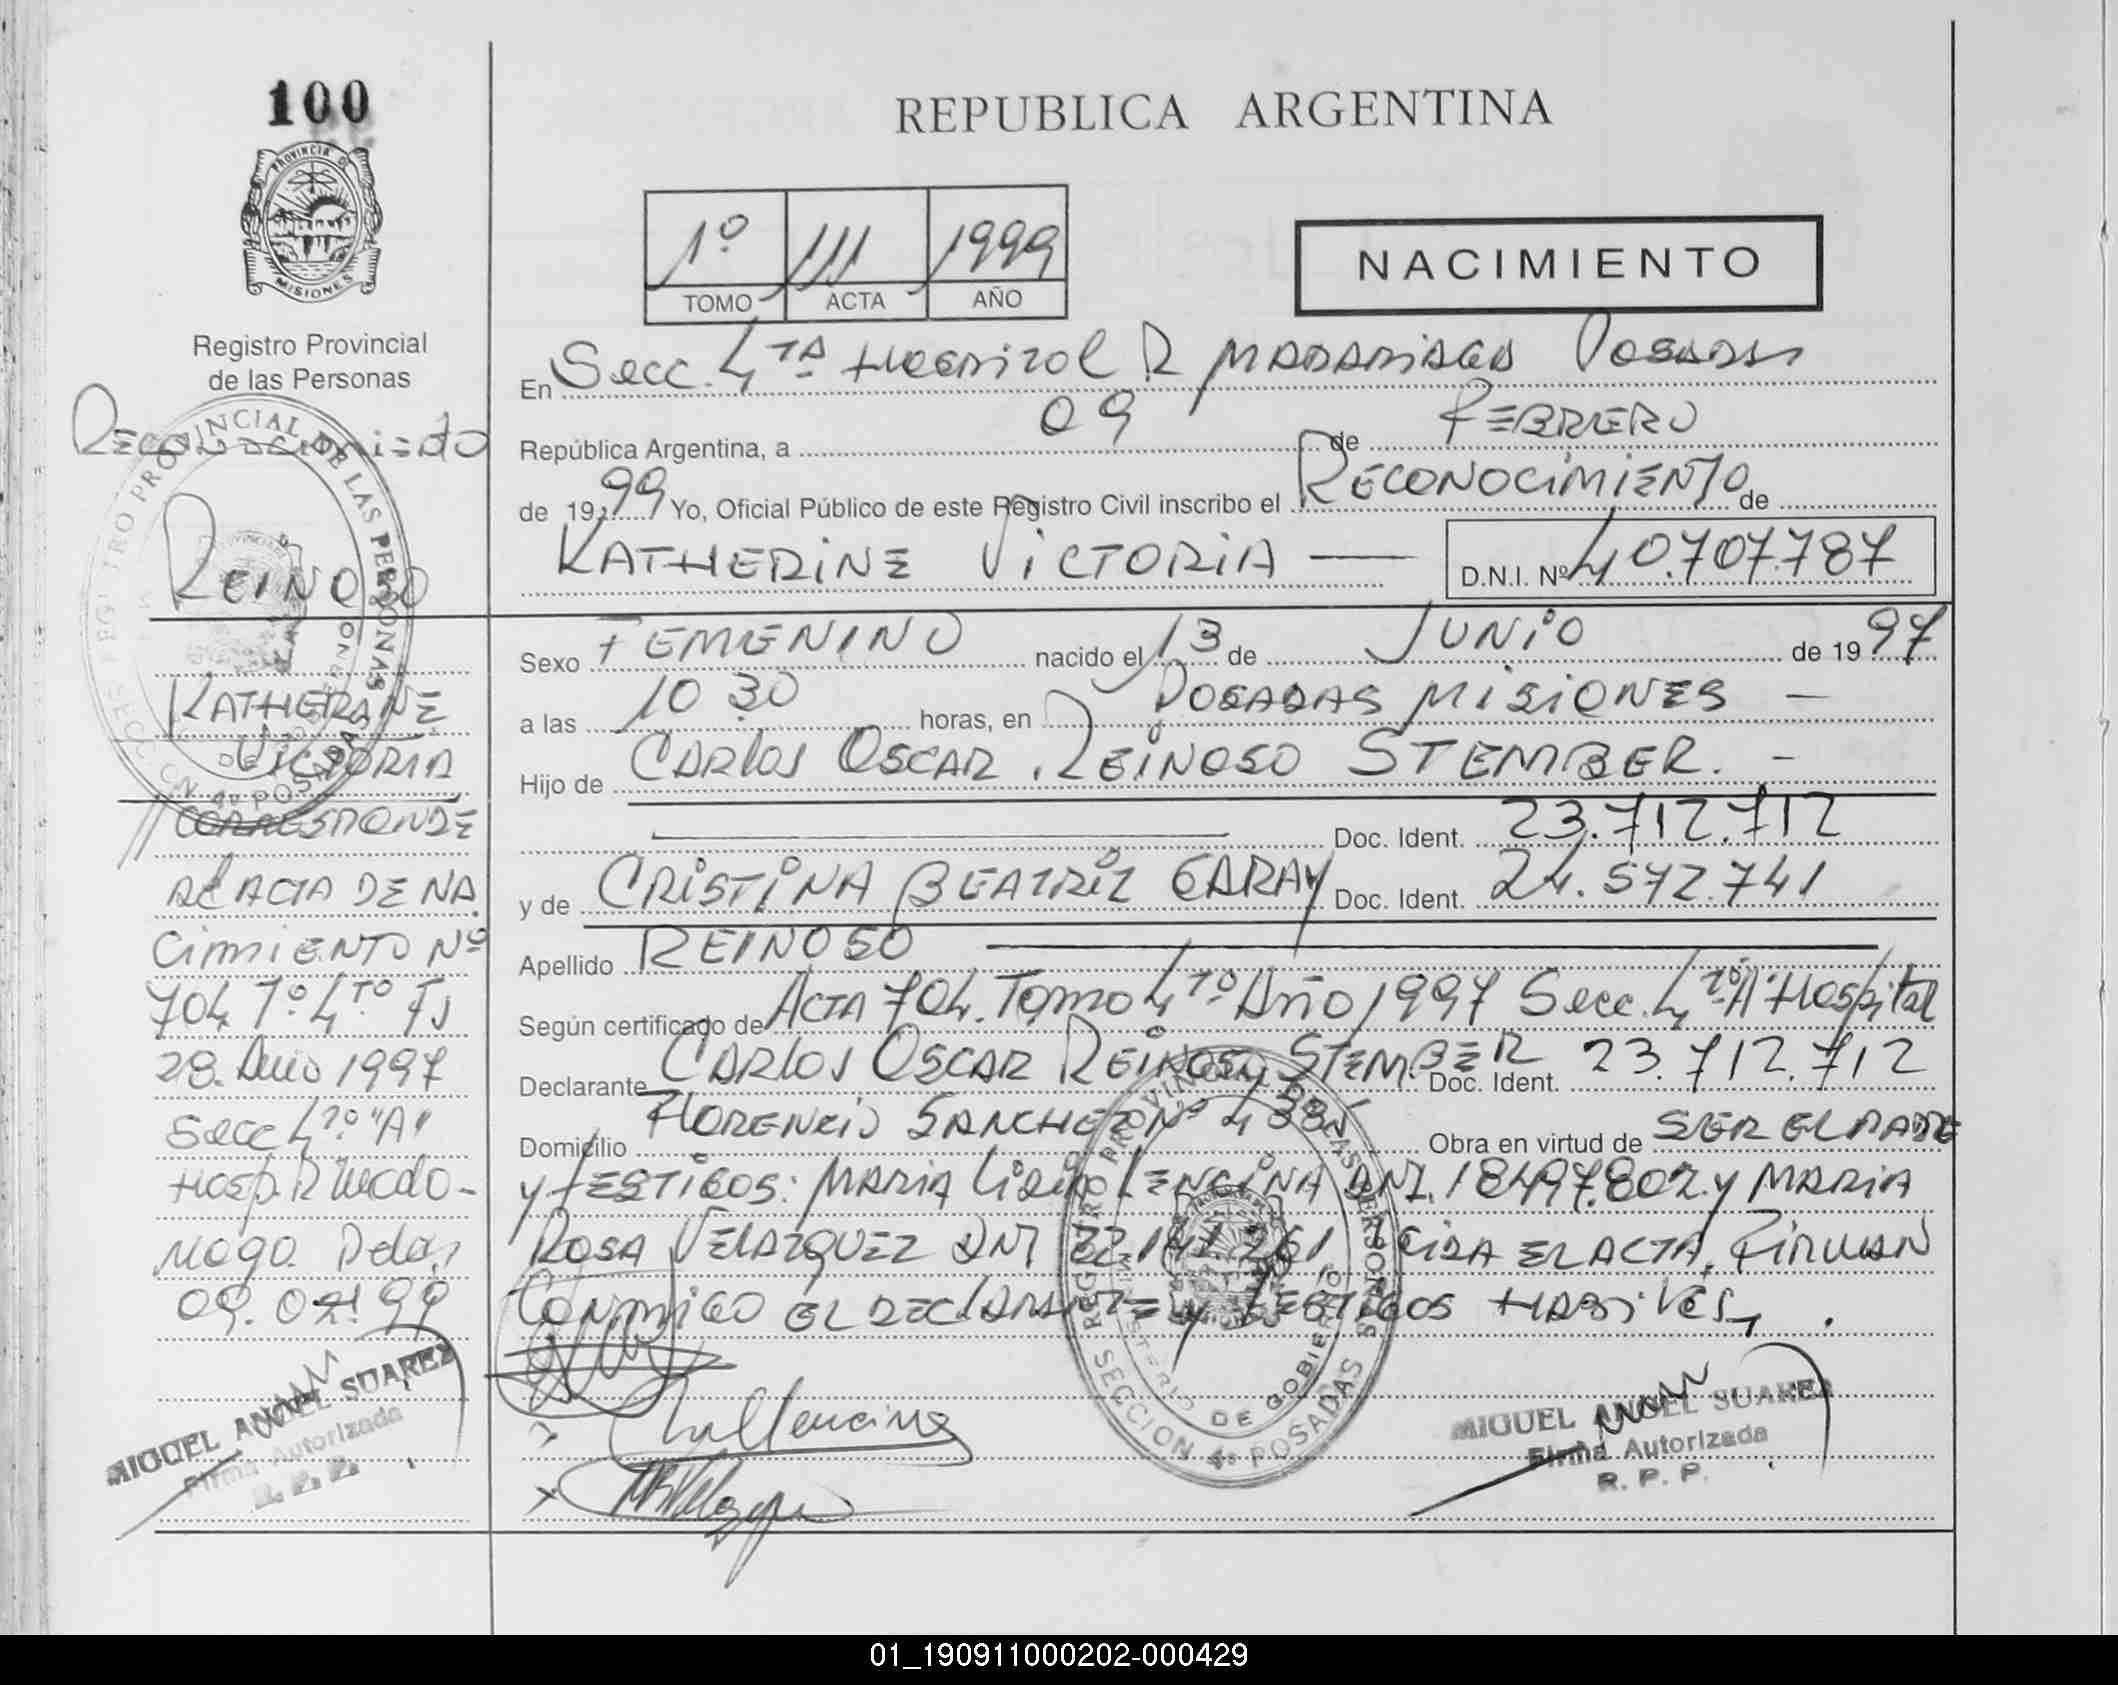 100
PROVINCIA DE
MISIONES
Registro Provincial
de las Personas
RECONOCIMIENTO
REINOSO
KATHERINE
VICTORIA
CORRESPONDE
AL ACTA DE NA
CIMIENTO Nº
704 Tº 4TO Fs
28. Año 1997
Secc 4TA "A"
Hosp. R Mada-
09.02.99
MIGUEL ANGEL SUAREZ
Firma Autorizada
R. P. P.
REPUBLICA ARGENTINA
1º 111 1999
TOMO ACTA AÑO
NACIMIENTO
En Secc. 4TA HOSPITAL R MADARIAGA POSADAS
República Argentina, a 09 de FEBRERO
de 1999 Yo, Oficial Público de este Registro Civil inscribo el RECONOCIMIENTO de
KATHERINE VICTORIA — D.N.I. Nº 40.707.787
Sexo FEMENINO nacido el 13 de JUNIO de 1997
a las 10 30 horas, en POSADAS MISIONES —
Hijo de CARLOS OSCAR REINOSO STEMBER. -
Doc. Ident. 23.712.712
y de CRISTINA BEATRIZ GARAY Doc. Ident. 24.572.741
Apellido REINOSO
Según certificado de ACTA 704. Tomo 4TO Año 1997 Secc. 4TA "A" Hospital
Declarante CARLOS OSCAR REINOSO STEMBER Doc. Ident. 23.712.712
Domicilio FLORENCIO SANCHEZ Nº Obra en virtud de SER EL PADRE
y TESTIGOS: MARIA LENCINA DNI. 18497.802 y MARIA
ROSA VELAZQUEZ DNI LEIDA EL ACTA, FIRMAN
CONMIGO EL DECLARANTE y TESTIGOS HABILES
REGISTRO PROVINCIAL DE LAS PERSONAS
MINISTERIO DE GOBIERNO
SECCION 4º POSADAS
MIGUEL ANGEL SUAREZ
Firma Autorizada
R. P. P.
01_190911000202-000429